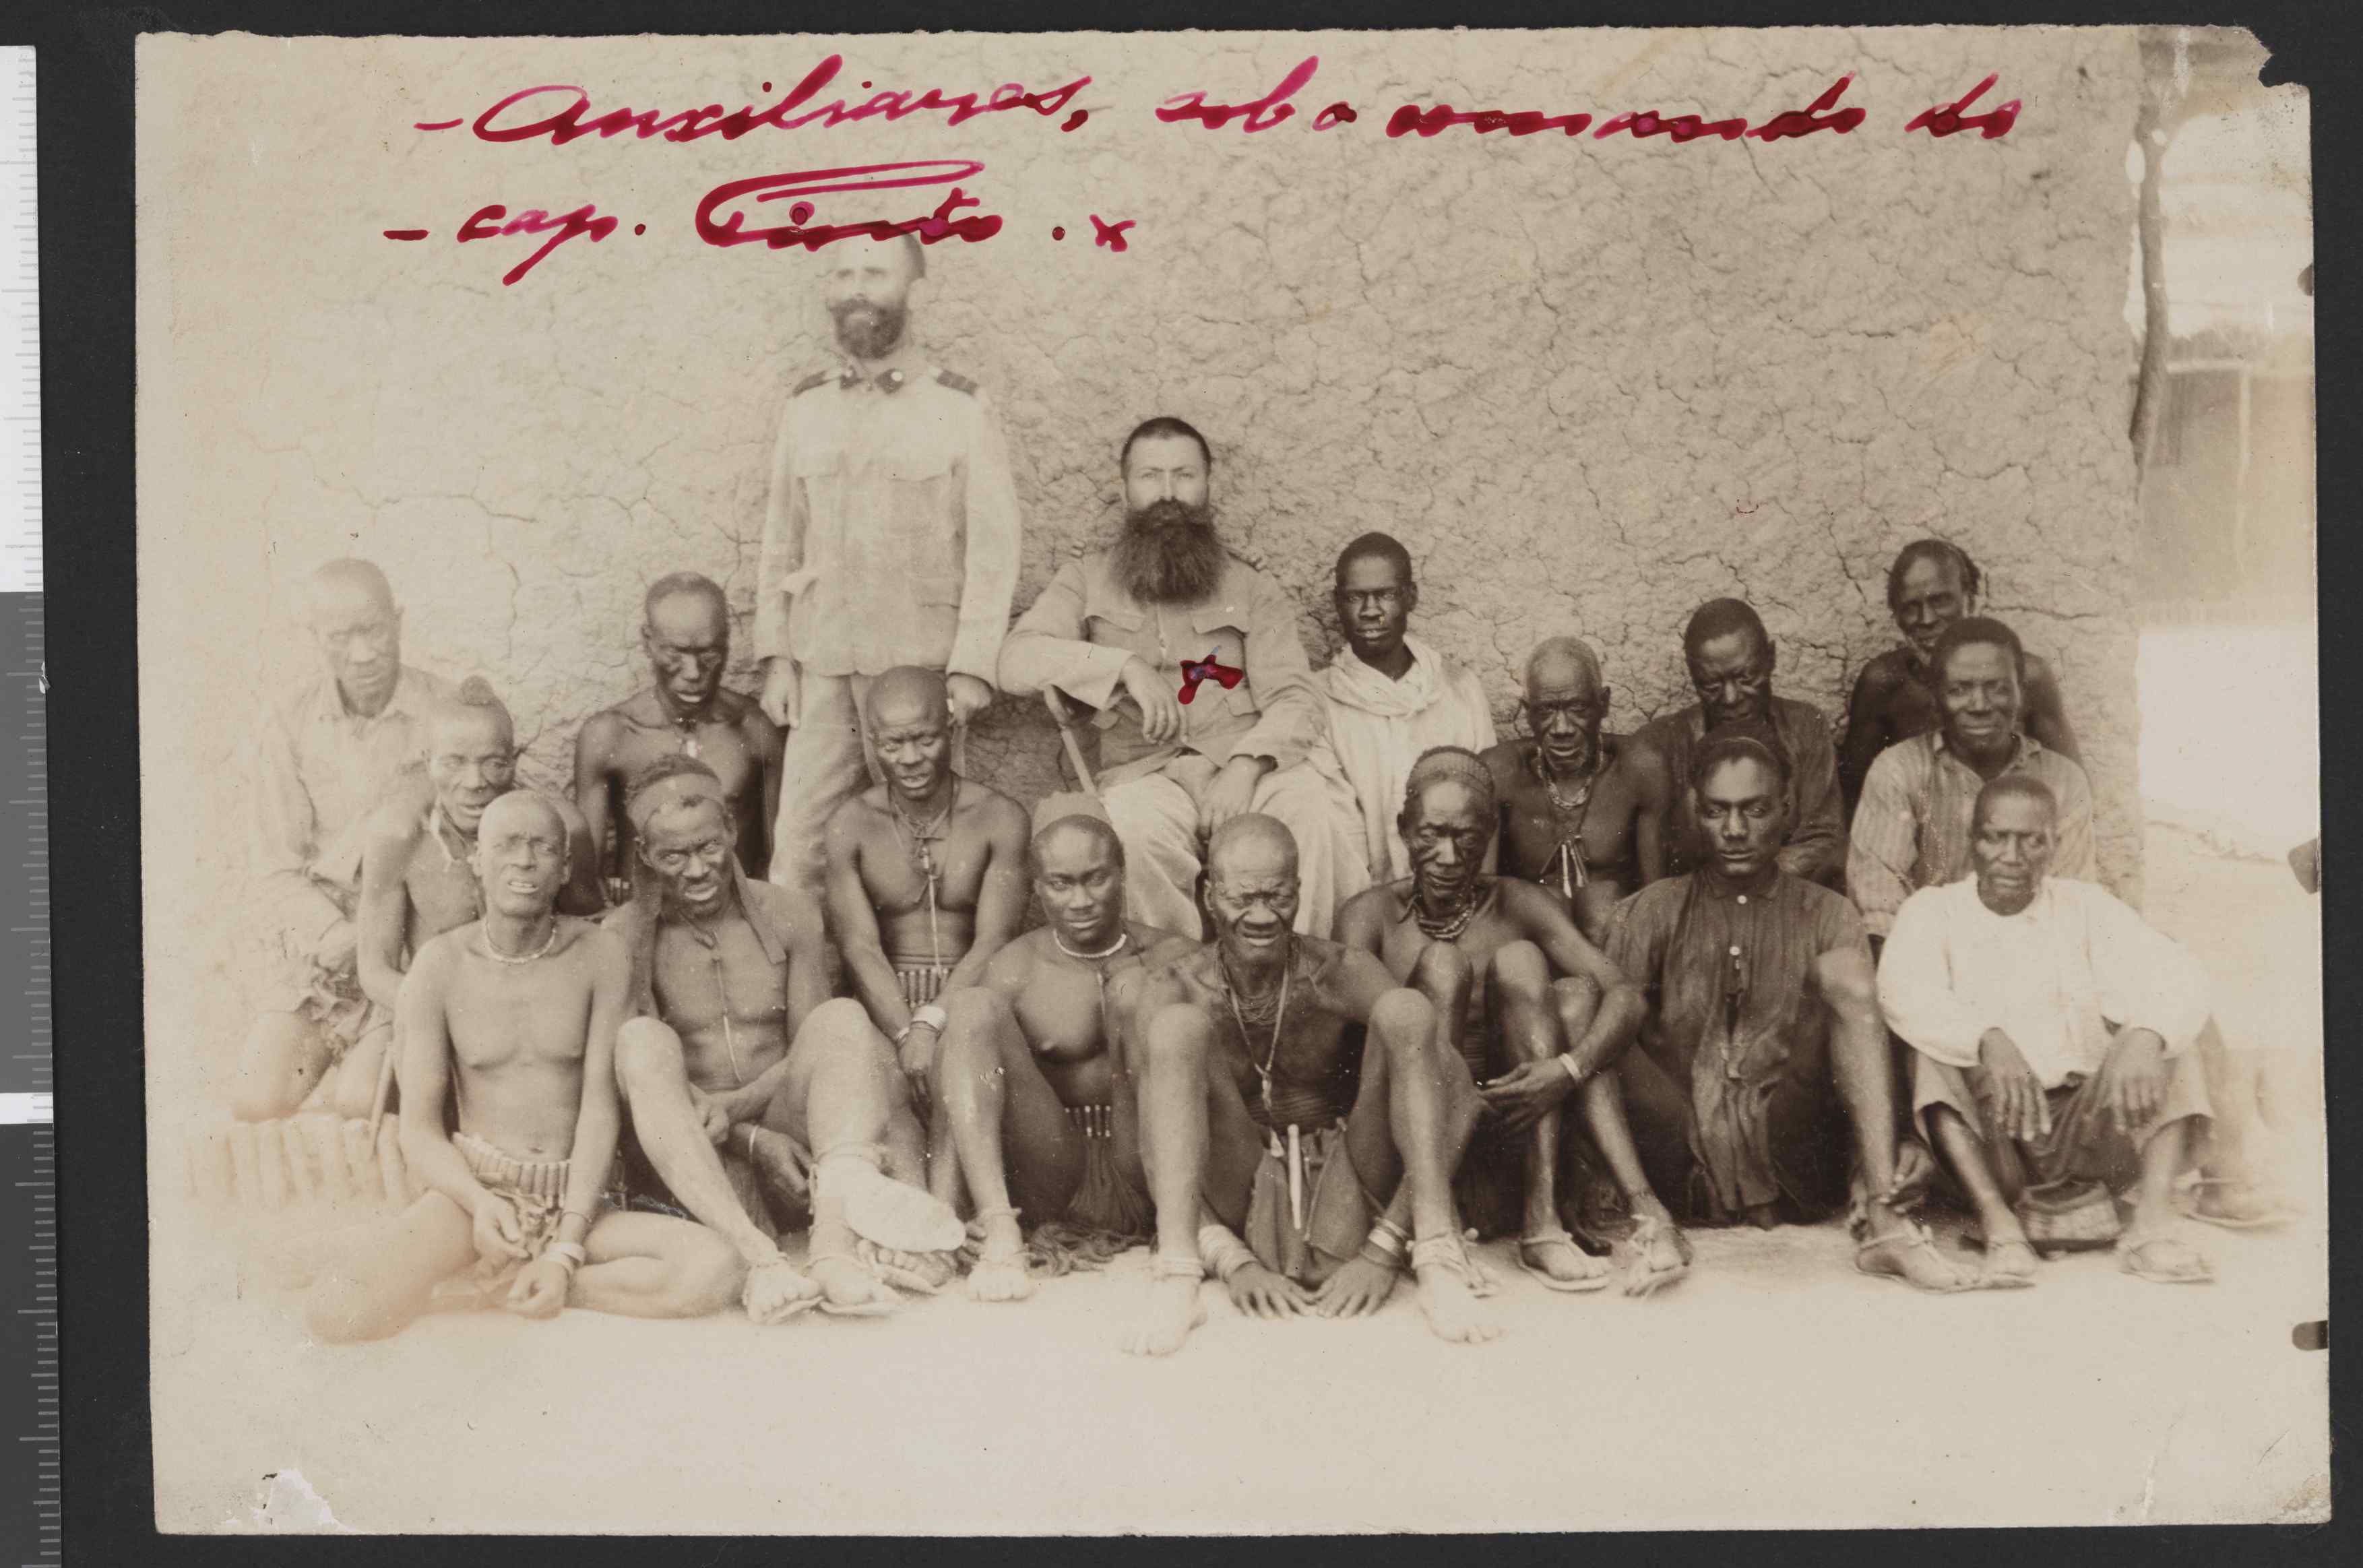 - Auxiliares, sob o comando do
- cap. Pinto . x